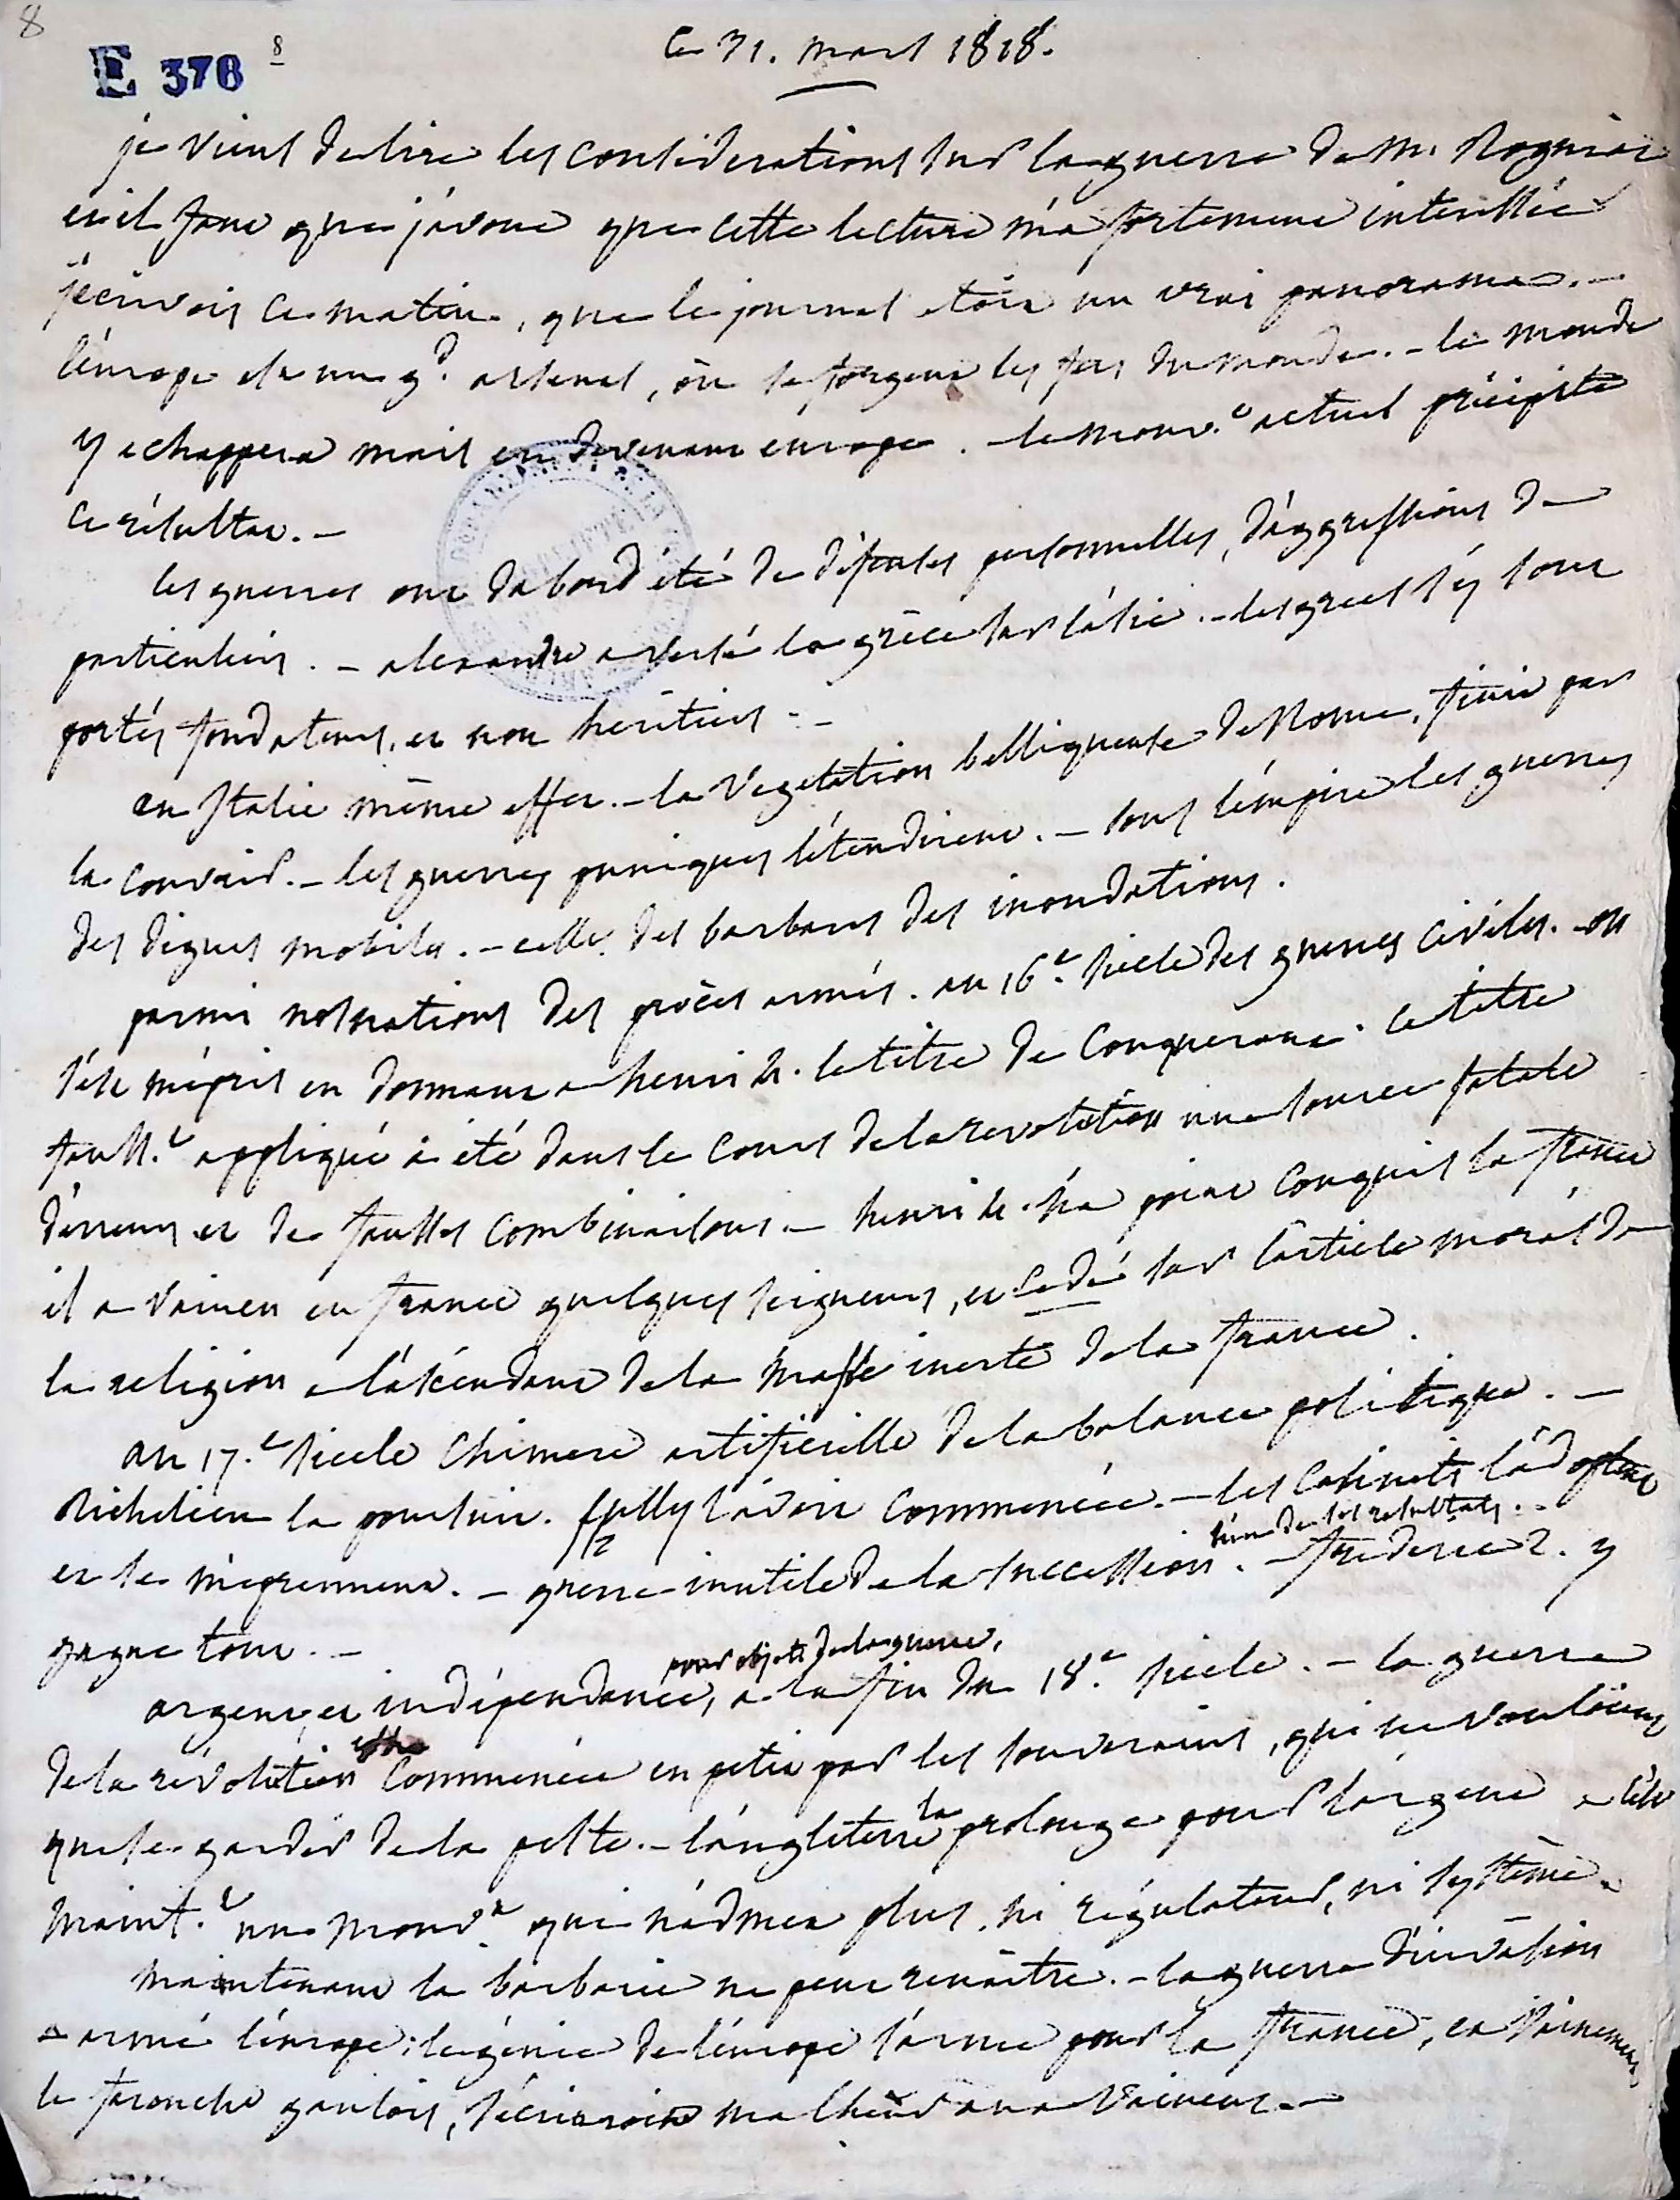 8
E 378 8
Ce 31. mars 1818.
je viens de lire les considerations sur la guerre de M. Rogniat
et il faut que j'avoue que cette lecture m'a fortement interessée
j'écrivois ce matin, que le journal etoit un vrai panorama. -
l'europe est un gd. arsenal, où se forgent les fers du monde. - le monde
y echappera mais en devenant europe. - le mouvt. actuel précipite
ce résultat. -
les guerres ont dabord été de disputes personnelles, d'aggressions de
particuliers. - alexandre a versé la grèce sur l'asie. - les grecs s'y sont
portés fondateurs, et non heritiers. -
en Italie même effet. - la vegetation belliqueuse de Rome, finit par
la couvrir. - les guerres puniques l'étendirent. - sous l'empire les guerres
des digues mobiles. - celles des barbares des inondations.
parmi nos nations des procès armés. au 16e. siecle des guerres civiles. - on
s'est mépris en donnant a henri 4. le titre de Conquerant. ce titre
fausst. appliqué a été dans le cours de la revolution une source fatale
d'erreurs et de fausses combinaisons. - henri 4. n'a point conquis la france
il a vaincu en france quelques seigneurs, et cedé sur l'article moral de
la religion a l'ascendant de la masse inerte de la france.
au 17.e siecle chimere artificielle de la balance politique. -
Richelieu la poursuit. Sully l'avoit commencée. - les cabinets l'adoptent
et se méprennent. - guerre inutile de la succession. - frederic 2. y
l'un de ses resultats. -
gagne tout. -
pour objets de la guerre,
argent, et indépendance, a la fin du 18.e siecle. - la guerre
de la révolution commencée en petit par les souverains, qui ne vouloient
que se garder de la peste. - l'angleterre la prolonge pour l'argent - c'est
maint.t un mouv.t qui n'admet plus, ni régulateur, ni systême.
maintenant la barbarie ne peut renaitre. - la guerre d'invasion
a armé l'europe; le génie de l'europe s'arme pour la france, et vainement
le farouche gaulois, s'écrieroit malheur aux vaincus. -